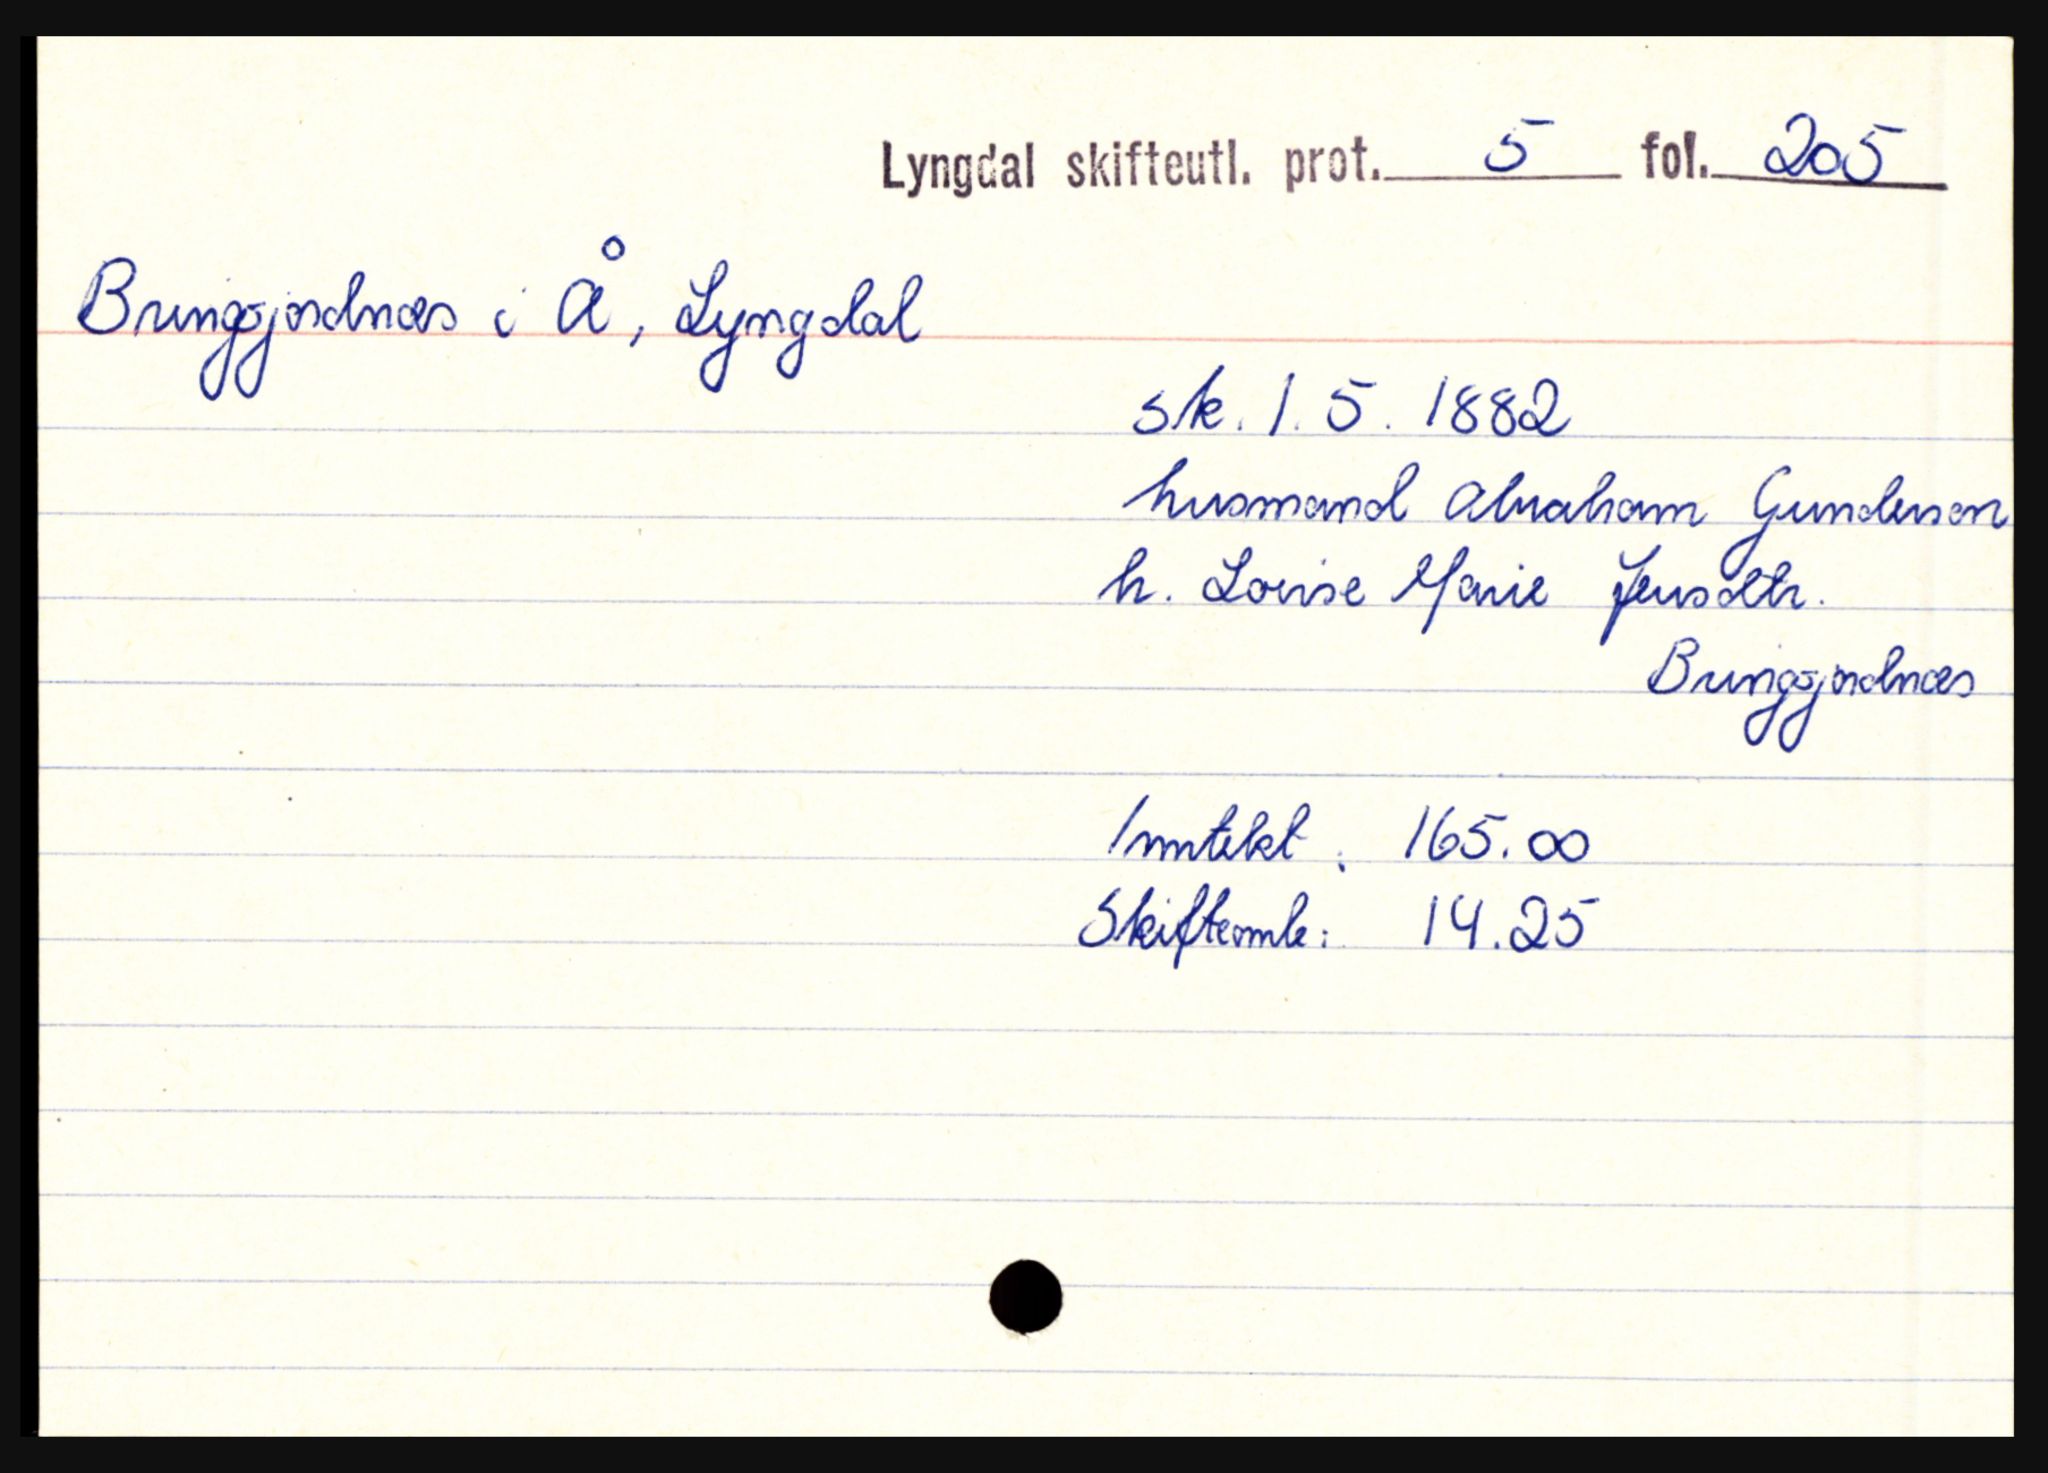 Lyngdal skifteutl. prot. 5 fol. 205
Bringsjordnæs i Å, Lyngdal
sk. 1.5. 1882
husmand Abraham Gundersen
h. Lovise Marie Jensdtr.
Bringsjordnæs
Inntekt: 165.00
Skifteomk: 14.25